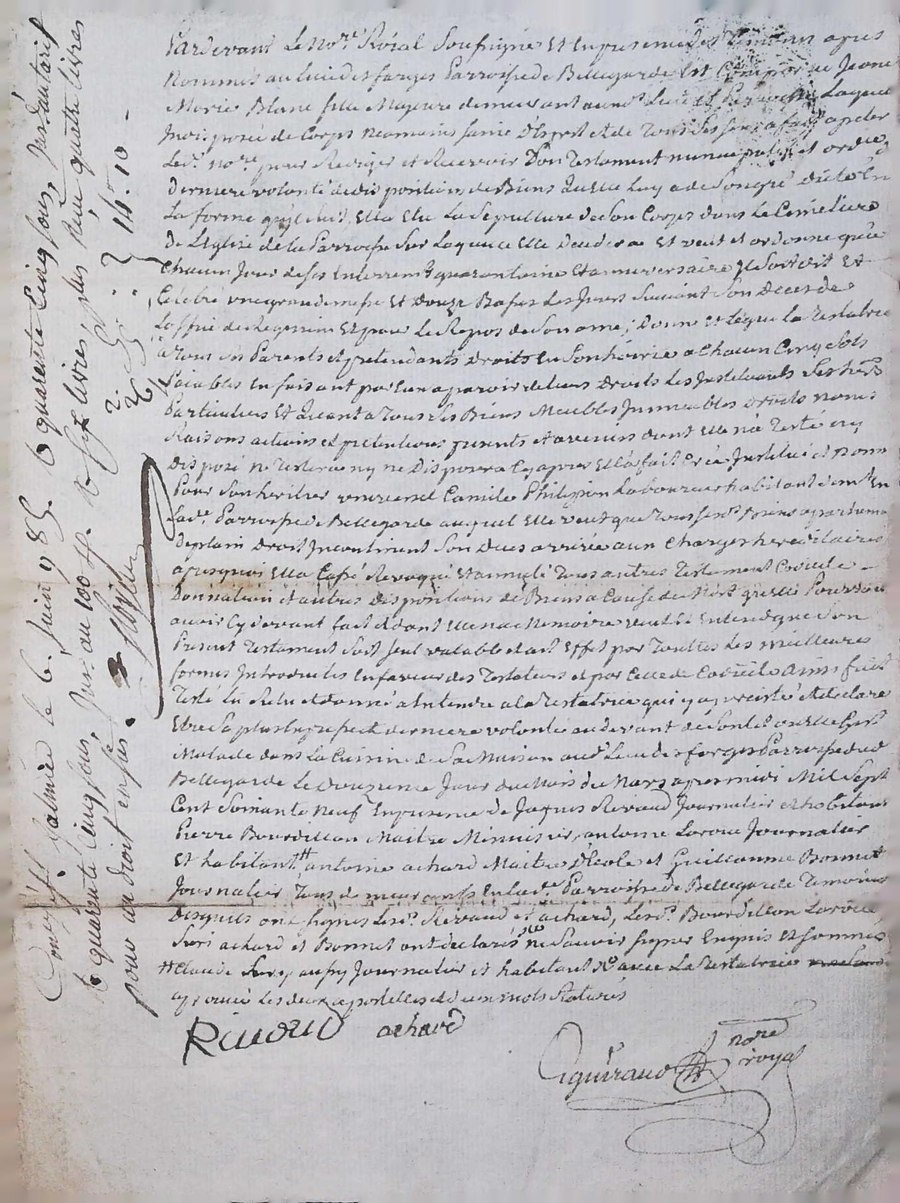 Pardevant Le no.re Roial Soussigné Et en presence des Temoins apres
Nommés au lieu des farges Parroisse de Bellegarde Est Comparue Jeane
Marie Blanc fille Majeure demeurant aud. Lieu et Parroisse Laquelle
Indisposée de Corps neamains saine D'Esprit et de Tous ses sens a fait apeler
Led. no.re pour Rediger et Recevoir Son Testament nuncupatif et ordre de
Derniere volonté de disposition de Biens qu'elle luy a de Son gré Dicté En
La forme qui suit, Ella Elu La Sepulture de Son Corps dans Le Cemetiere
De L'Eglise de la Parroisse Sur Laquelle Elle Decedera Et veut et ordonne que
Chacun Jour de ses Enterrem.t quarantaine Et anniversaire Il Soit dit Et
Celebré une grande messe Et Douze Basses Les Jours Suivant Son Deces de
Loffice de Requiem Et pour Le Repos de Son ame; Donne et Legue La Testatrice
a Tous ses Parents et pretendants Droits En Son hoirie a Chacun Cinq Sols
Paiables En faisant par Eux aparoir de Leurs Droits Les Instituants Ses her.s
Particuliers Et Quant a Tous ses Biens Meubles Immeubles Droits noms
Raisons actions et pretentions presents et avenirs dont Elle n'a Testé ny
Disposé ne Testera ny ne Disposera Cy apres Ella fait Créé Institué et Nommé
Pour Son heritier universel Camile Philippon Laboureur habitant dem.t En
Lad.e Parroisse de Bellegarde auquel Elle veut que Tous ses d. Biens apartienne
De plain Droit Incontinent Son Deces arrivé aux Charges hereditaires
apres quoi Ella Cassé Revoqué Et annulé Tous autres Testament Codicile
Donnation et autres Dispositions de Biens a Cause de Mort qu'elle Pourroit
avoir Cy devant fait et dont Elle n'a Memoire veut Et Entend que Son
Present Testament Soit Seul valable et ait Effet par Toutes Les meilleures
formes Introduites En faveur des Testateurs et par Celle de Codicile Ainsi fait
Testé Lu Relu et donné a Entendre a la Testatrice qui y a persisté et declaré
Etre Sa plus Expresse et derniere volonté au devant de Son lit ou elle Gist
Malade dans La Cuisine de Sa Maison aud. Lieu des farges Parroisse dud.
Bellegarde Le Douzieme Jour du Mois de Mars apres midi Mil Sept
Cent Soixante Neuf En presence de Jaques Revaud Journalier et habitant
Pierre Bourdillon Maitre Minusier, antoine Laroue Journalier
Et habitant ## antoine achard Maitre D'Ecole et Guillaume Bonnet
Journalier Tous demeurants En lad.e Parroisse de Bellegarde Temoins
Desquels ont signés Les d. Revaud et achard, Les d. Bourdillon Laroue
Sury achard et Bonnet ont declarés ne Sçavoir signer Enquis Et Sommés
## Claude Sury aussy Journalier et habitant avec La Testatrice
aprouvé Les deux apostilles et d'un mots Raturés
Revoud achard
Guiraud no.re royal
Con.le a S.t Galmier le 6. Juin 1785. R quarante Cinq sous, Pardautant
de quarante Cinq sous, Ins. au 100.e d. R Sept livres, plus Reçu quatre livres
pour un droit en sus.
14 - 10 -